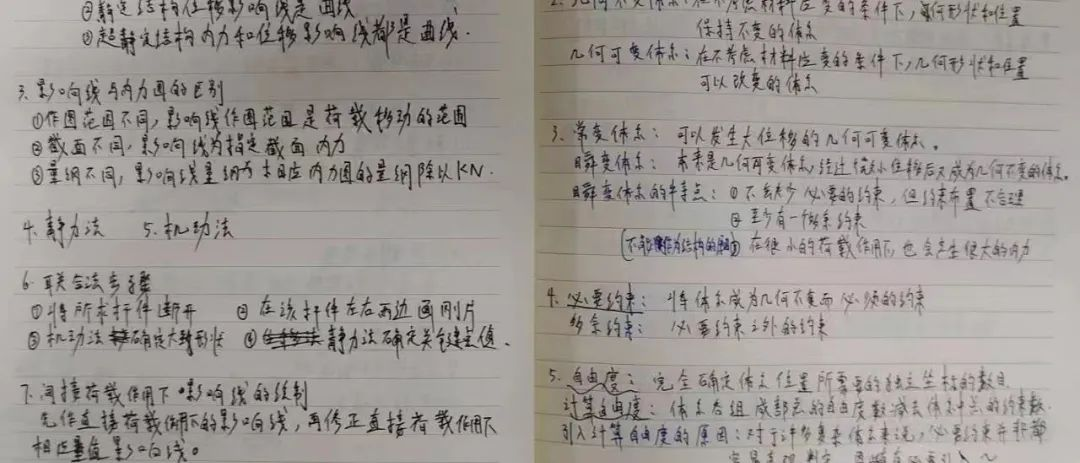 ②静定结构位移影响线是曲线
③超静定结构内力和位移影响线都是曲线.
3. 影响线与内力图的区别
①作图范围不同,影响线作图范围是荷载移动的范围
②截面不同,影响线为指定截面内力
③量纲不同,影响线量纲为相应内力图的量纲除以KN.
4. 静力法 5. 机动法
6. 联合法步骤
①将所求杆件断开 ②在该杆件左右两边画刚片
③机动法确定大致形状 ④静力法确定关键点值.
7. 间接荷载作用下影响线的绘制
先作直接荷载作用下的影响线,再修正直接荷载作用下
相应量值影响线。
2. 几何不变体系:在不考虑材料应变的条件下,几何形状和位置
保持不变的体系
几何可变体系:在不考虑材料应变的条件下,几何形状和位置
可以改变的体系
3. 常变体系: 可以发生大位移的几何可变体系。
瞬变体系: 本来是几何可变体系,经过微小位移后又成为几何不变的体系。
瞬变体系的特点: ①不缺少必要的约束,但约束布置不合理
②至少有一个多余约束
(不能作为结构的原因) 在很小的荷载作用下,也会产生很大的内力
4. 必要约束: 将体系成为几何不变而必须的约束
多余约束: 必要约束之外的约束
5. 自由度: 完全确定体系位置所需要的独立坐标的数目
计算自由度: 体系各组成部分的自由度数减去体系中总的约束数.
引入计算自由度的原因:对于许多复杂体系来说,必要约束并非